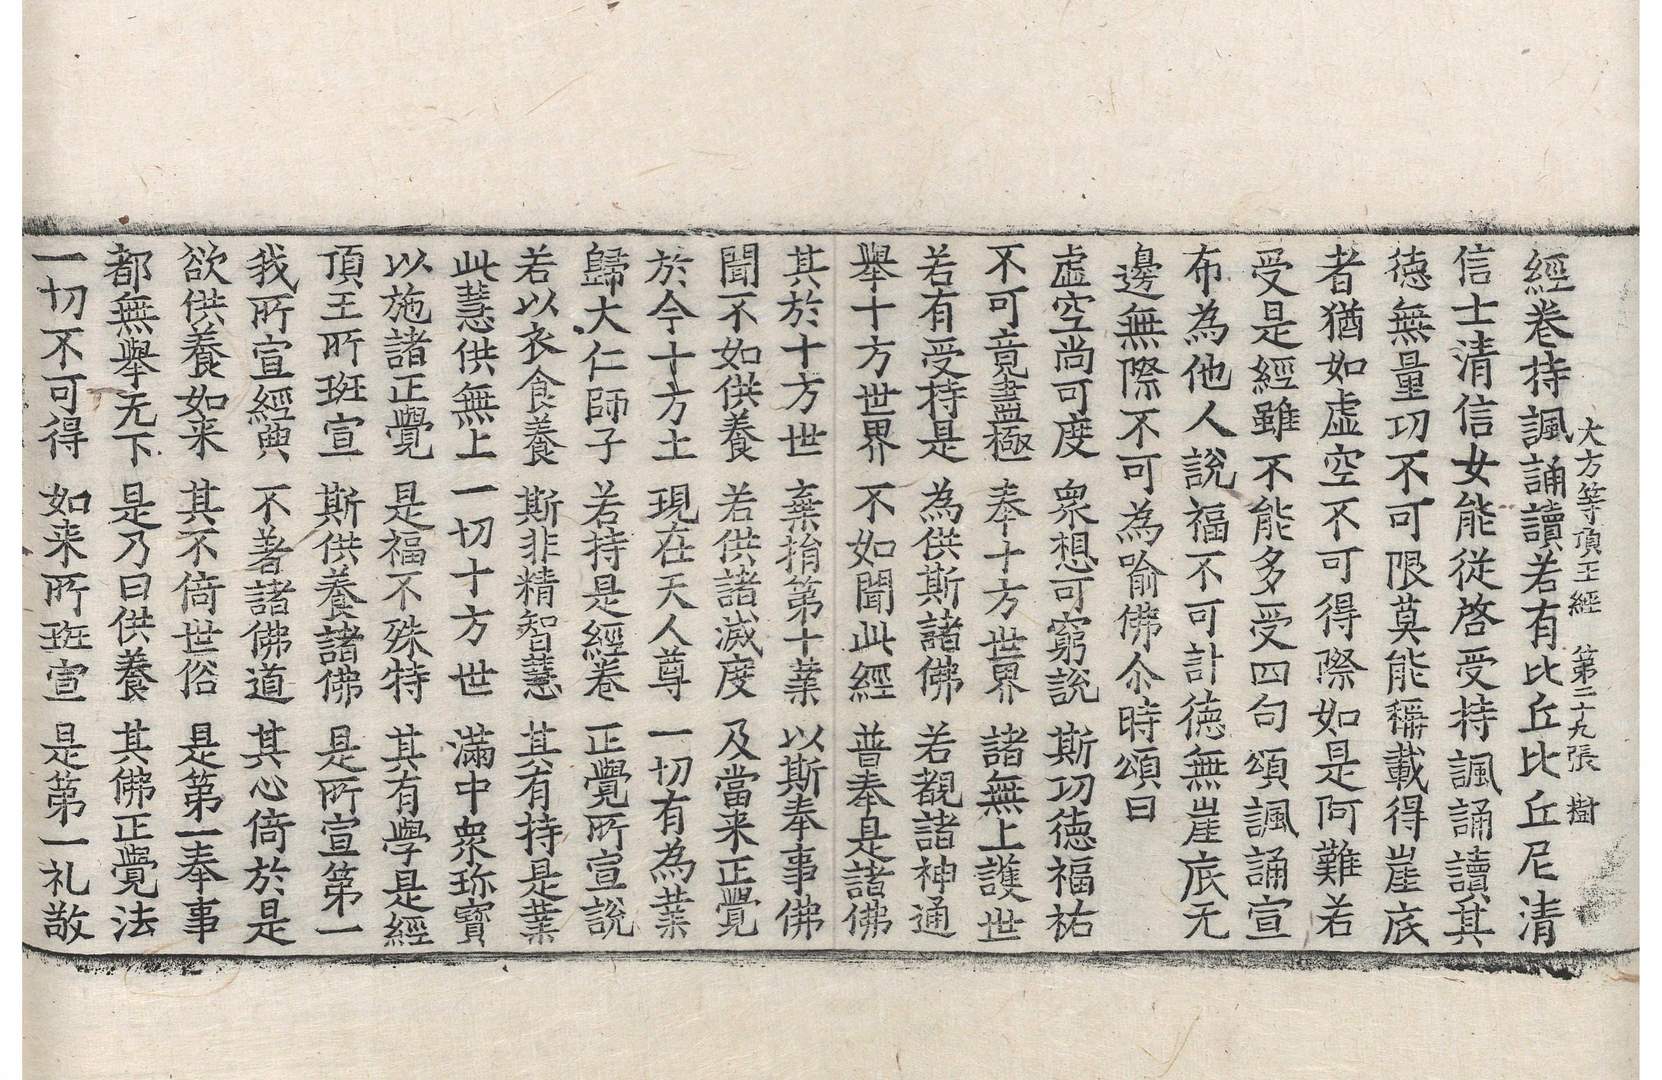 大方等頂王經 第二十九張 樹
經卷持諷誦讀若有比丘比丘尼清
信士清信女能從啓受持諷誦讀其
德無量功不可限莫能稱載得崖底
者猶如虛空不可得際如是阿難若
受是經雖不能多受四句頌諷誦宣
布為他人說福不可計德無崖底无
邊無際不可為喻佛尒時頌曰
虛空尚可度 衆想可窮說 斯功德福祐
不可竟盡極 奉十方世界 諸無上護世
若有受持是 為供斯諸佛 若覩諸神通
舉十方世界 不如聞此經 普奉是諸佛
其於十方世 棄捐第十業 以斯奉事佛
聞不如供養 若供諸滅度 及當来正覺
於今十方土 現在天人尊 一切有為業
歸大仁師子 若持是經卷 正覺所宣說
若以衣食養 斯非精智慧 其有持是業
此慧供無上 一切十方世 滿中衆珎寶
以施諸正覺 是福不殊特 其有學是經
頂王所班宣 斯供養諸佛 是所宣第一
我所宣經典 不著諸佛道 其心倚於是
欲供養如来 其不倚世俗 是第一奉事
都無舉无下 是乃曰供養 其佛正覺法
一切不可得 如来所班宣 是第一礼敬